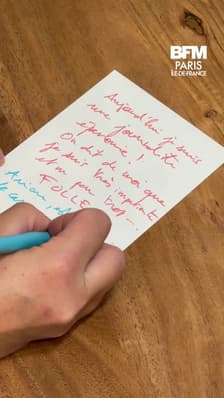 BFM
PARIS
ILE-DE-FRANCE
Aujourd'hui je suis
une journaliste
épanouie !
On dit de moi que
je suis très impliquée
et un peu trop...
FOLLE